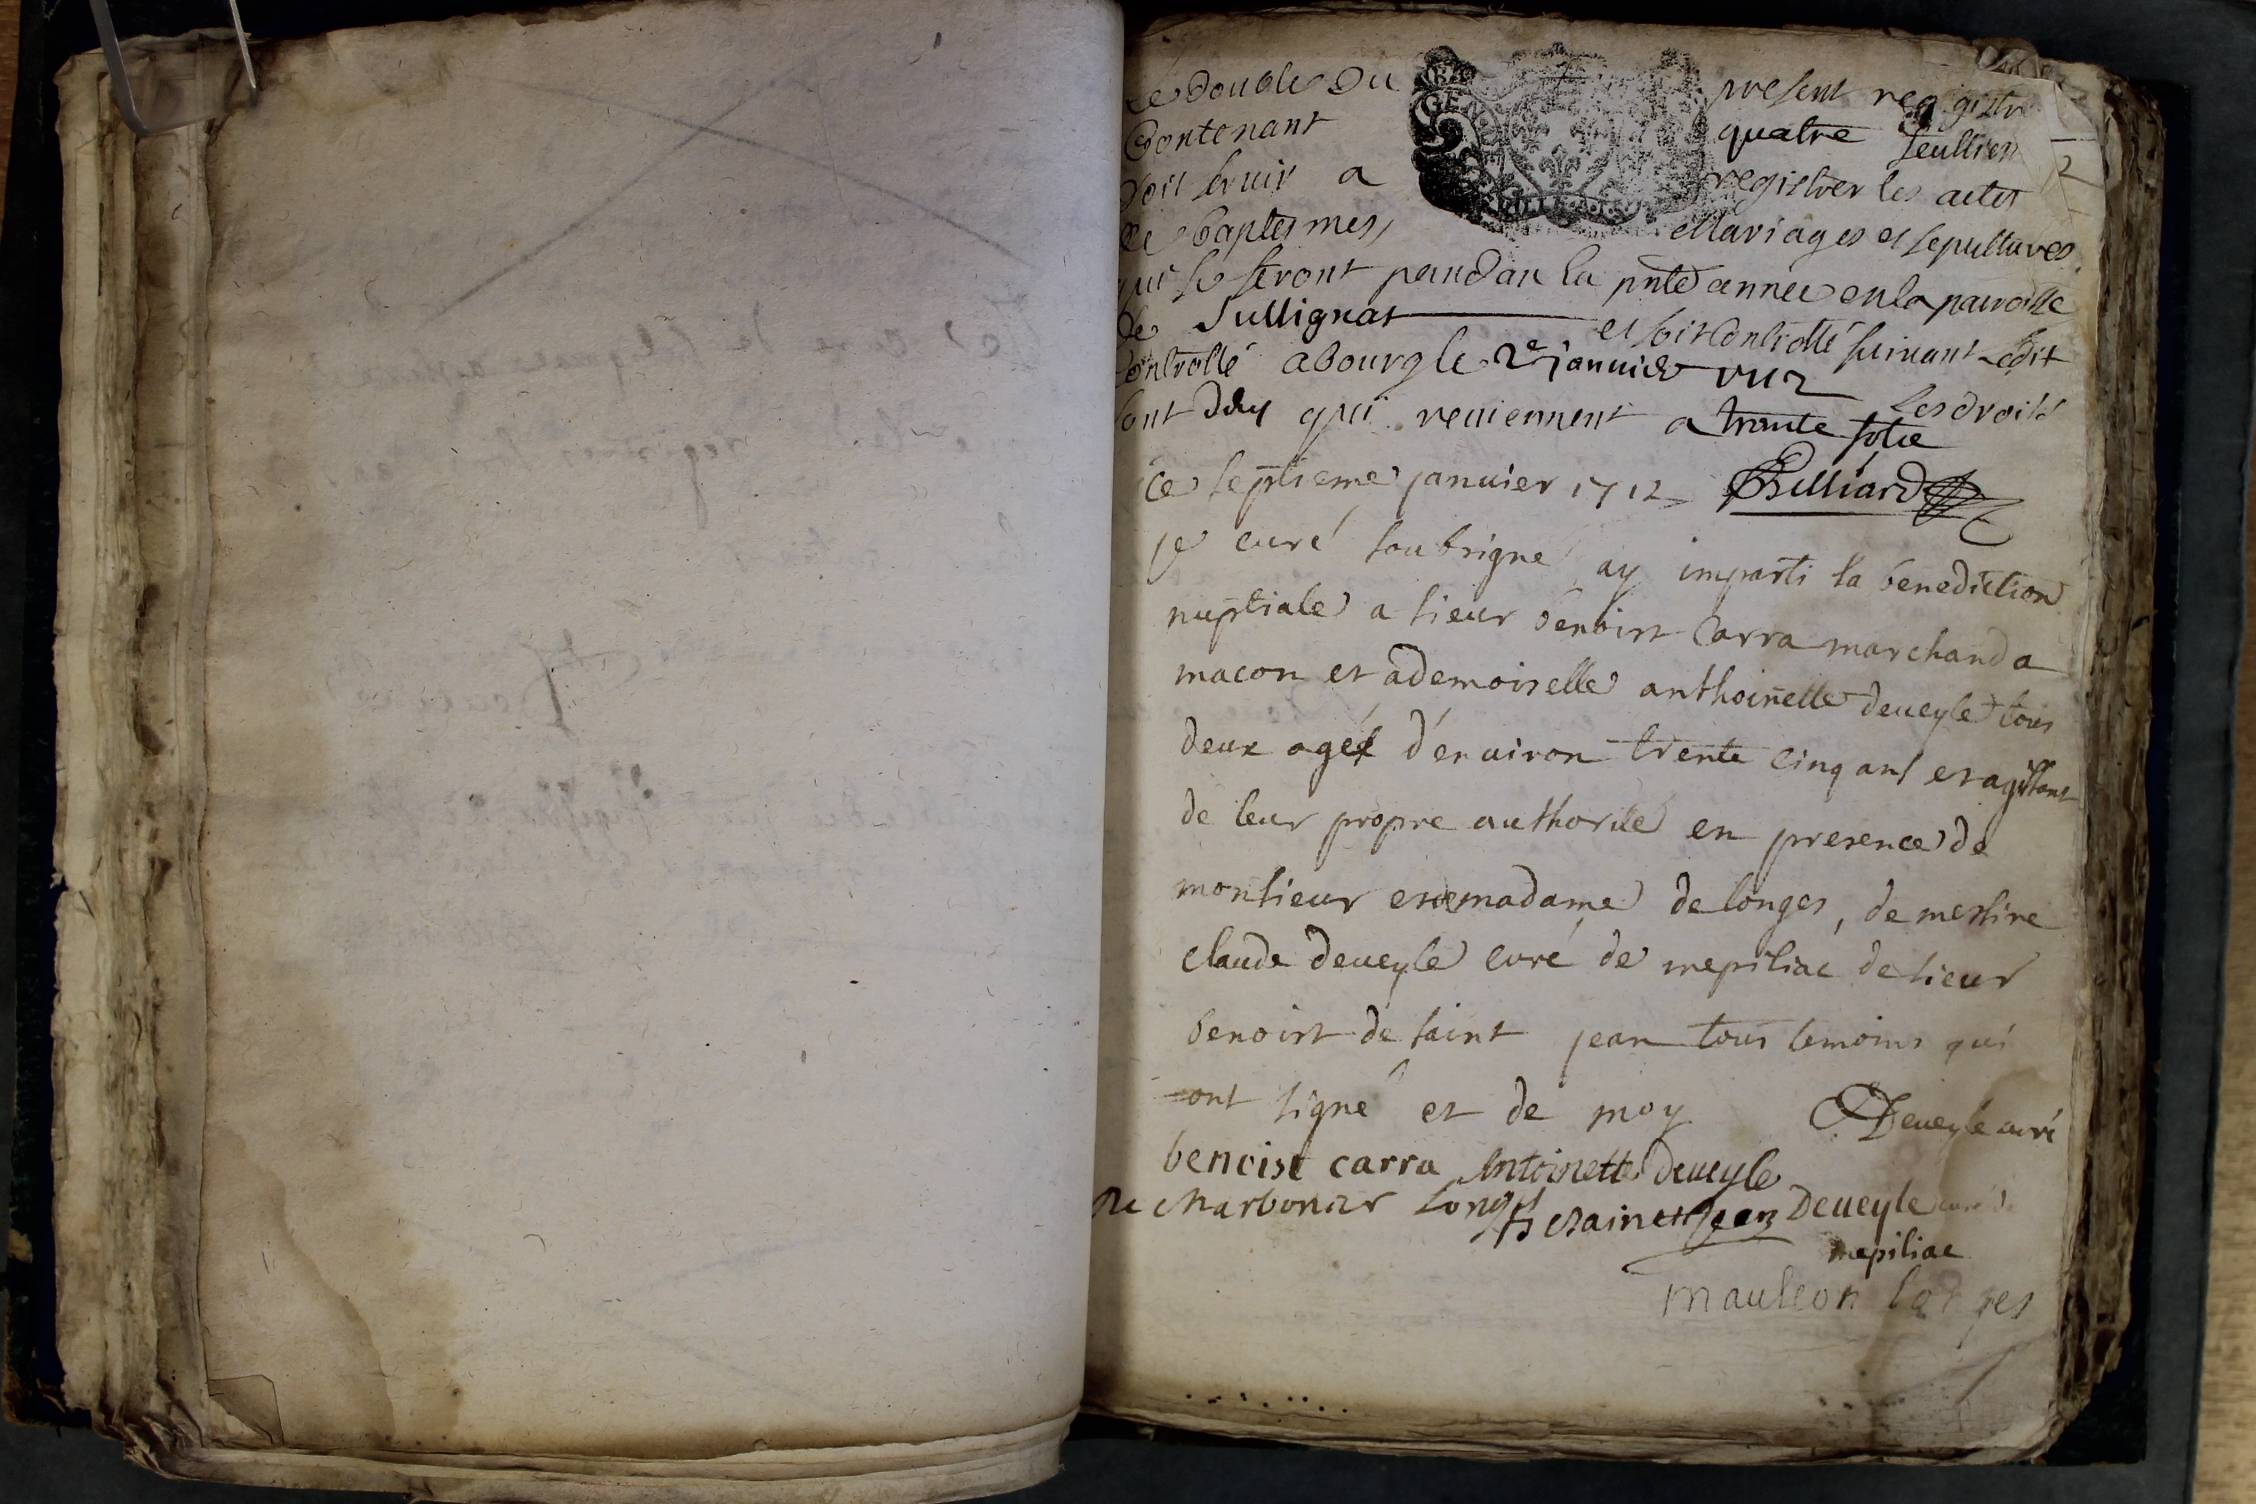 Le double du present registre
Contenant quatre feulliets
doit servir a registrer les actes
de baptesmes, Mariages et sepultures
qui se feront pendan la pnte année en la parroisse
de Sullignat et soit Controllé suivant Edit
Controllé a Bourg le 2e janvier 1712 Les droits
sont deus qui reviennent a trante solz
ce septieme janvier 1712 Billiard
je curé soubsigné ay imparti la benediction
nuptiale a sieur benoist Carra marchand a
macon et a demoiselle anthoinette deveyle tous
deux agés d'environ trente cinq ans et agissant
de leur propre authorité en presence de
monsieur et de madame de longes, de messire
claude deveyle curé de mepiliac de sieur
benoist de saint jean tous temoins qui
ont signé et de moy Deveyle curé
benoist carra Antoinette deveyle
De Charbonier Longes B Desainct jean Deveyle curé de
mepiliac
mauleon longes
2